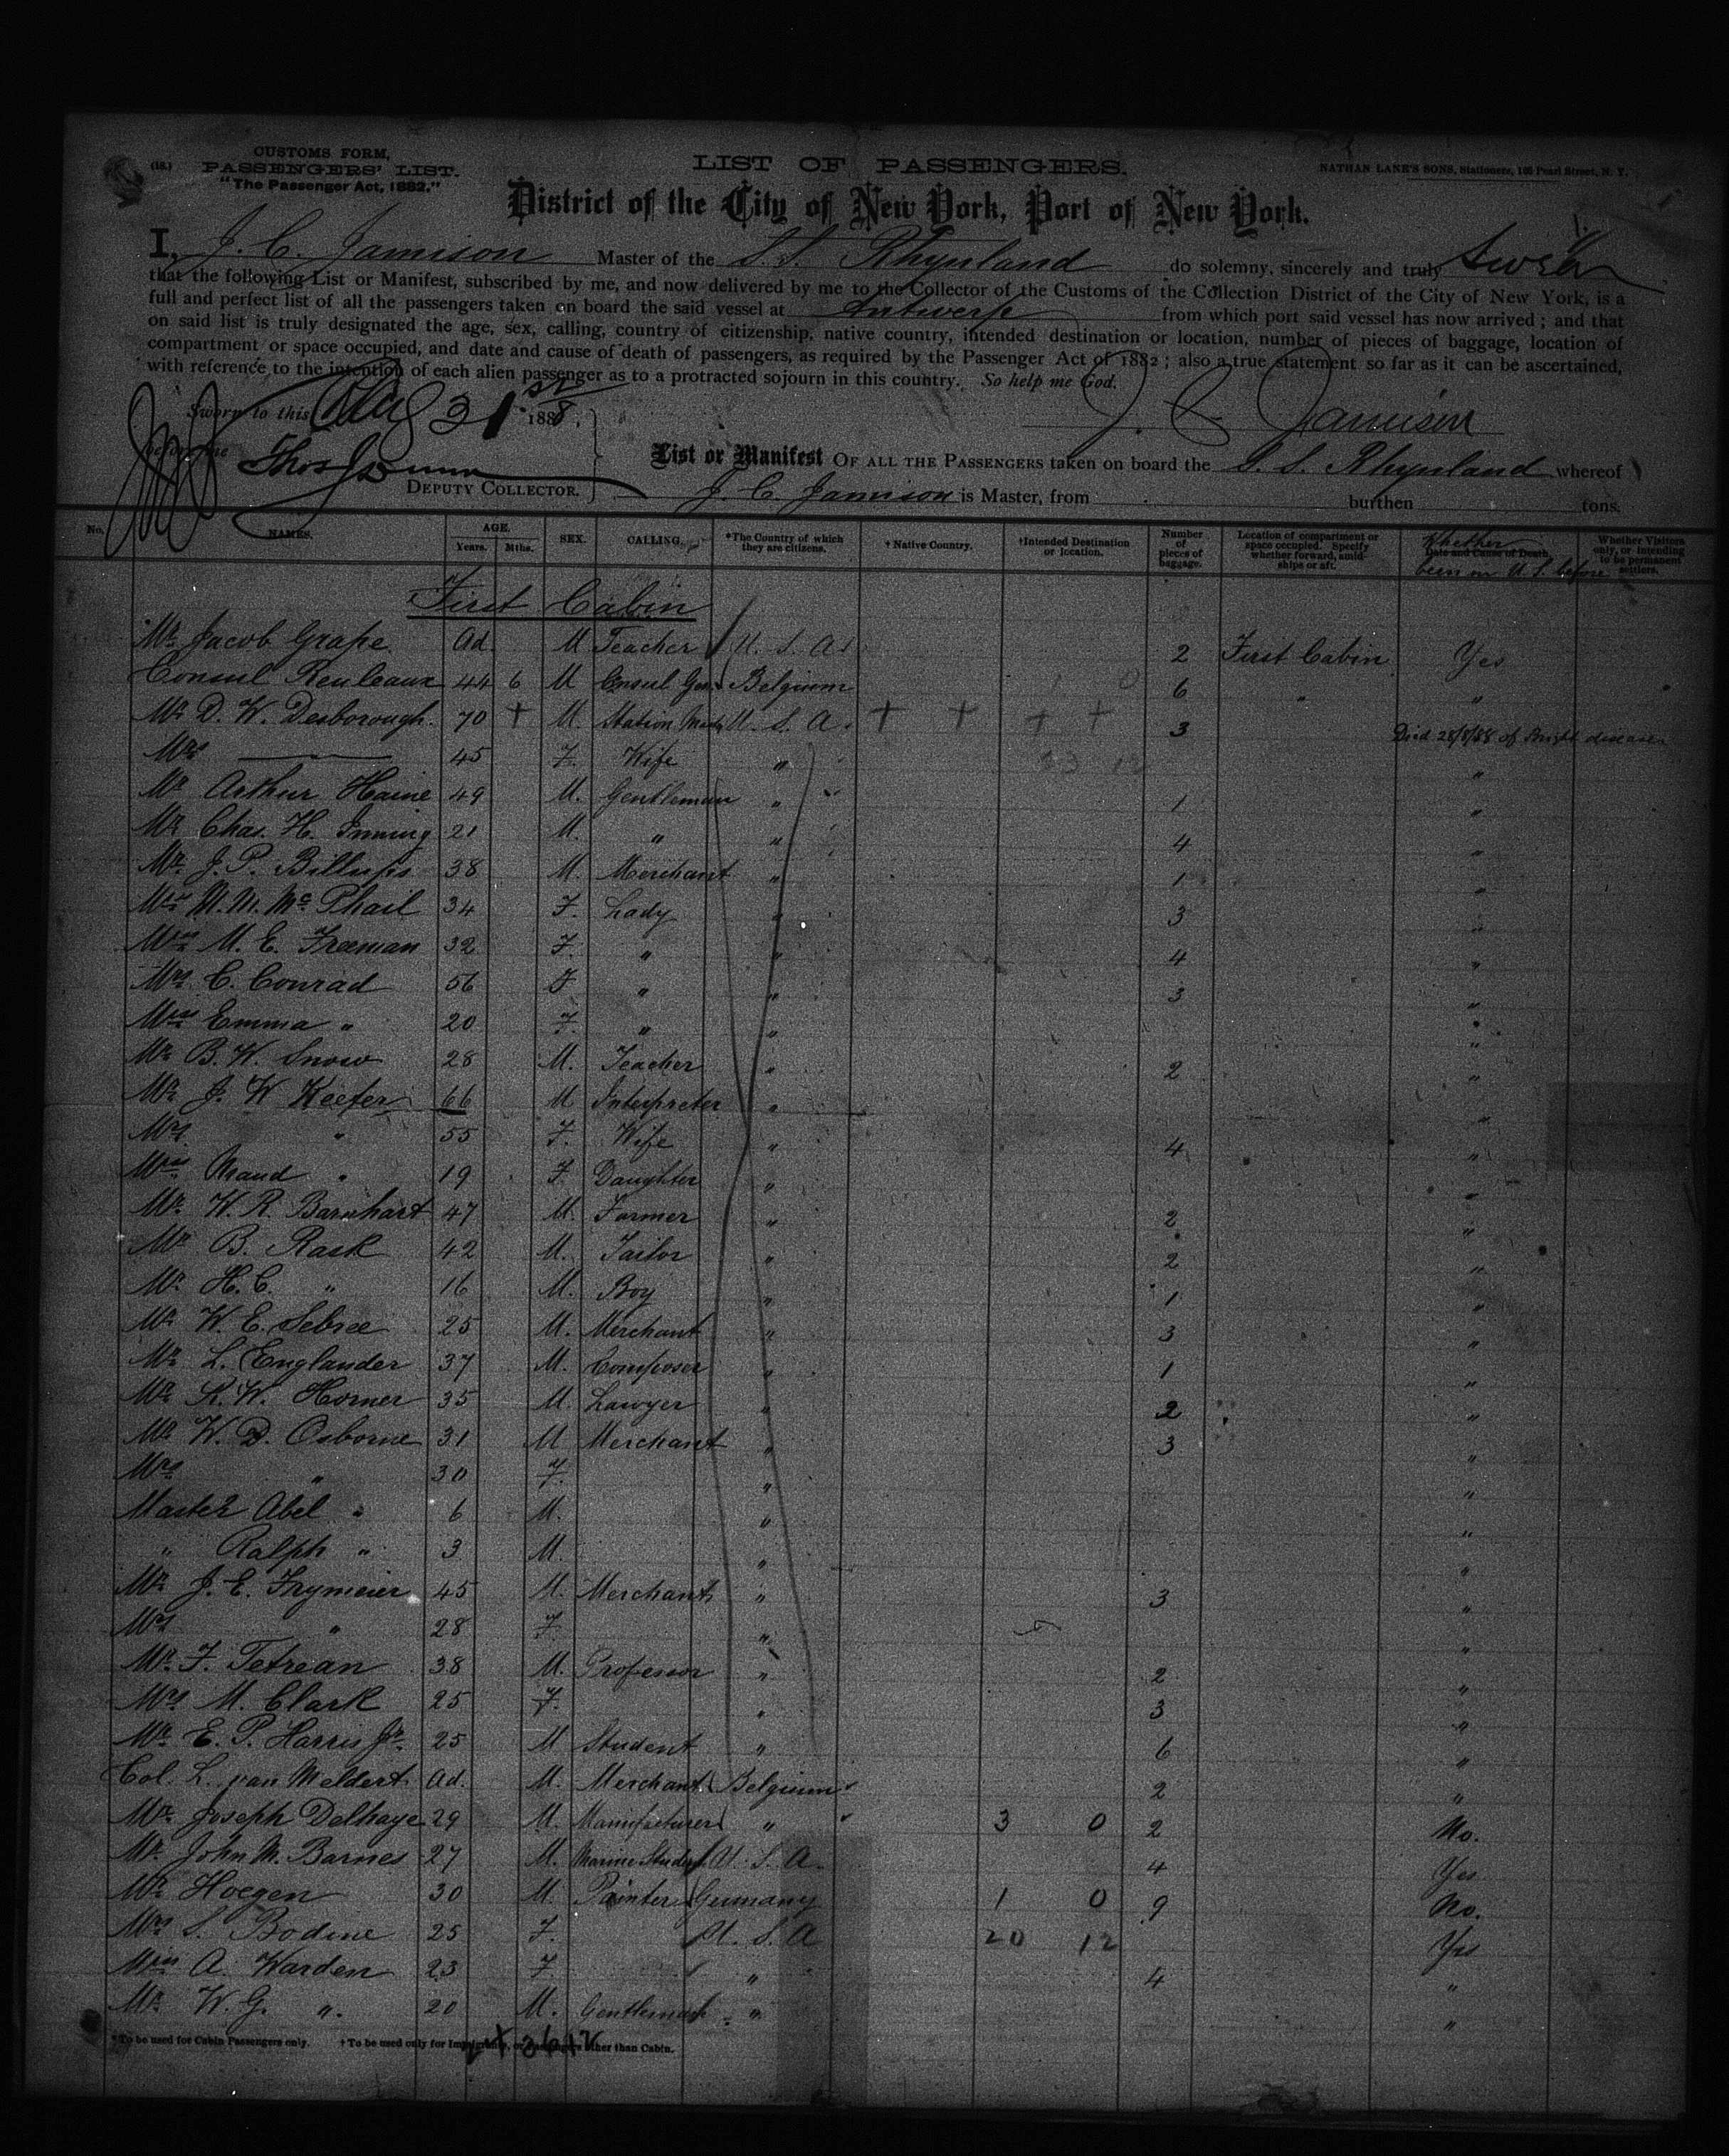 (18.)
CUSTOMS FORM,
PASSENGERS' LIST.
"The Passenger Act, 1882."
LIST OF PASSENGERS.
NATHAN LANE'S SONS, Stationers, Pearl Street, N. Y.
District of the City of New York, Port of New York.
I, J. C. Jamison Master of the S.S. Rhynland do solemny, sincerely and truly Swear
that the following List or Manifest, subscribed by me, and now delivered by me to the Collector of the Customs of the Collection District of the City of New York, is a
full and perfect list of all the passengers taken on board the said vessel at Antwerp from which port said vessel has now arrived; and that
on said list is truly designated the age, sex, calling, country of citizenship, native country, intended destination or location, number of pieces of baggage, location of
compartment or space occupied, and date and cause of death of passengers, as required by the Passenger Act of 1882; also a true statement so far as it can be ascertained,
with reference to the intention of each alien passenger as to a protracted sojourn in this country. So help me God.
Sworn to this Aug 31st 1888,
J C Jamison
before me Thos J Dunn
DEPUTY COLLECTOR.
List or Manifest OF ALL THE PASSENGERS taken on board the S. S. Rhynland whereof
J. C. Jamison is Master, from burthen tons.
No. NAMES. AGE. Years. Mths. SEX. CALLING. *The Country of which they are citizens. †Native Country. †Intended Destination or location. Number of pieces of baggage. Location of compartment or space occupied. Specify whether forward, amidships or aft. Date and Cause of Death. Whether been in U. S. before Whether Visitors only, or intending to be permanent settlers.
First Cabin
Mr Jacob Grape Ad. M Teacher U. S. A. 2 First Cabin Yes
Consul Reuleaux 44 6 M Consul Gen. Belgium 6 " "
Mr D. W. Desborough. 70 + M. Station U. S. A. + + + + 3 Died 28/8/88 of Bright disease
Mrs — 45 F. Wife " "
Mr Arthur Haine 49 M. Gentleman " 1 "
Mr Chas. H. Inning 21 M. " " 4 "
Mr J. P. Billups 38 M. Merchant " 1 "
Mrs M. M. McPhail 34 F. Lady " 3 "
Miss M. E. Freeman 32 F. " " 4 "
Mrs C. Conrad 56 F " " 3 "
Miss Emma " 20 F. " " "
Mr B. W. Snow 28 M. Teacher " 2 "
Mr J. W Keefer 66 M Interpreter " "
Mrs " 55 F. Wife " 4 "
Miss Maud " 19 F. Daughter " "
Mr W. R. Barnhart 47 M. Farmer " 2 "
Mr B. Rask 42 M. Tailor " 2 "
Mr H. C. " 16 M. Boy " 1 "
Mr W. E. Sebree 25 M. Merchant " 3 "
Mr L. Englander 37 M. Composer " 1 "
Mr K. W. Horner 35 M. Lawyer " 2 "
Mr W. D. Osborne 31 M Merchant " 3 "
Mrs " 30 F. " "
Master Abel " 6 M. " "
" Ralph " 3 M. " "
Mr J. E. Frymeier 45 M. Merchant " 3 "
Mrs " 28 F. " "
Mr F. Tetrean 38 M. Professor " 2 "
Mrs M. Clark 25 F. " 3 "
Mr E. P. Harris Jr. 25 M Student " 6 "
Col. L. van Meldert Ad. M. Merchant Belgium 2 "
Mr Joseph Delhaye 29 M. Manufacturer " 3 0 2 No.
Mr. John M. Barnes 27 M. Marine Student U. S. A. 4 Yes
Mr Hoegen 30 M. Painter Germany 1 0 9 No.
Mrs S. Bodine 25 F. U. S. A 20 12 Yes
Miss A. Warden 23 F. " 4 "
Mr W. G. " 20 M. Gentleman " "
*To be used for Cabin Passengers only. †To be used only for Immigrants, or Passengers other than Cabin.